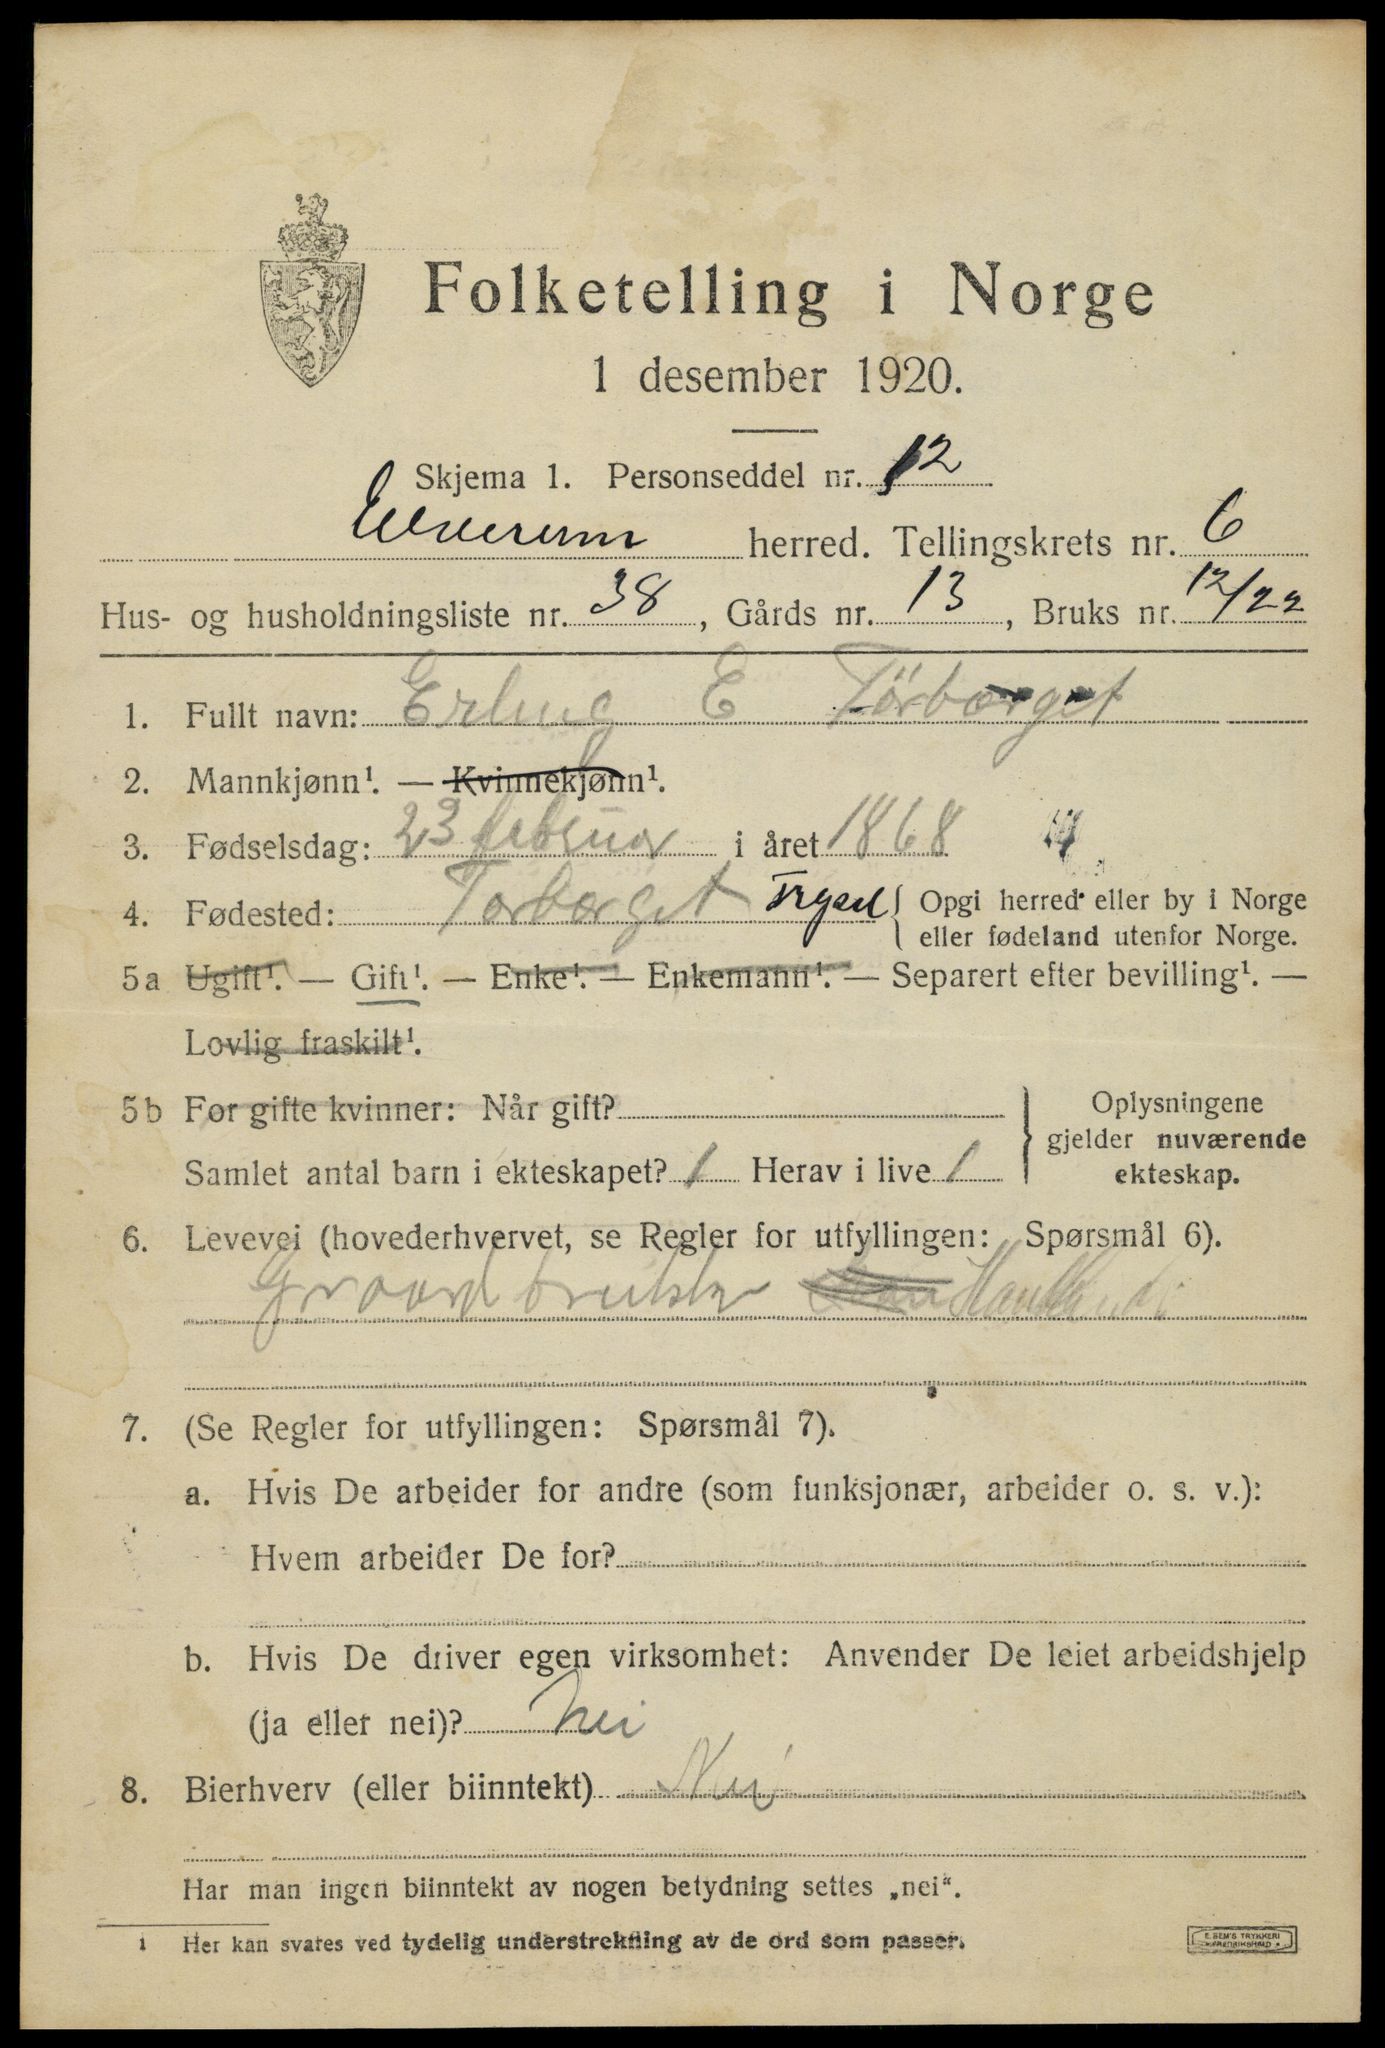 Folketelling i Norge
1 desember 1920.
Skjema 1. Personseddel nr. 12
Elverum herred. Tellingskrets nr. 6
Hus- og husholdningsliste nr. 38, Gårds nr. 13, Bruks nr. 12/22
1. Fullt navn: Erling E Tørberget
2. Mannkjønn¹. — Kvinnekjønn¹.
3. Fødselsdag: 23 februar i året 1868
4. Fødested: Tørberget Trysil { Opgi herred eller by i Norge
eller fødeland utenfor Norge.
5a Ugift¹. — Gift¹. — Enke¹. — Enkemann¹. — Separert efter bevilling¹. —
Lovlig fraskilt¹.
5b For gifte kvinner: Når gift?
Samlet antal barn i ekteskapet? 1 Herav i live 1
} Oplysningene
gjelder nuværende
ekteskap.
6. Levevei (hovederhvervet, se Regler for utfyllingen: Spørsmål 6).
Gaardbruker
7. (Se Regler for utfyllingen: Spørsmål 7).
a. Hvis De arbeider for andre (som funksjonær, arbeider o. s. v.):
Hvem arbeider De for?
b. Hvis De driver egen virksomhet: Anvender De leiet arbeidshjelp
(ja eller nei)? Nei
8. Bierhverv (eller biinntekt) Nei
Har man ingen biinntekt av nogen betydning settes „nei“.
1 Her kan svares ved tydelig understrekning av de ord som passer.
E. SEM'S TRYKKERI
FREDRIKSHALD